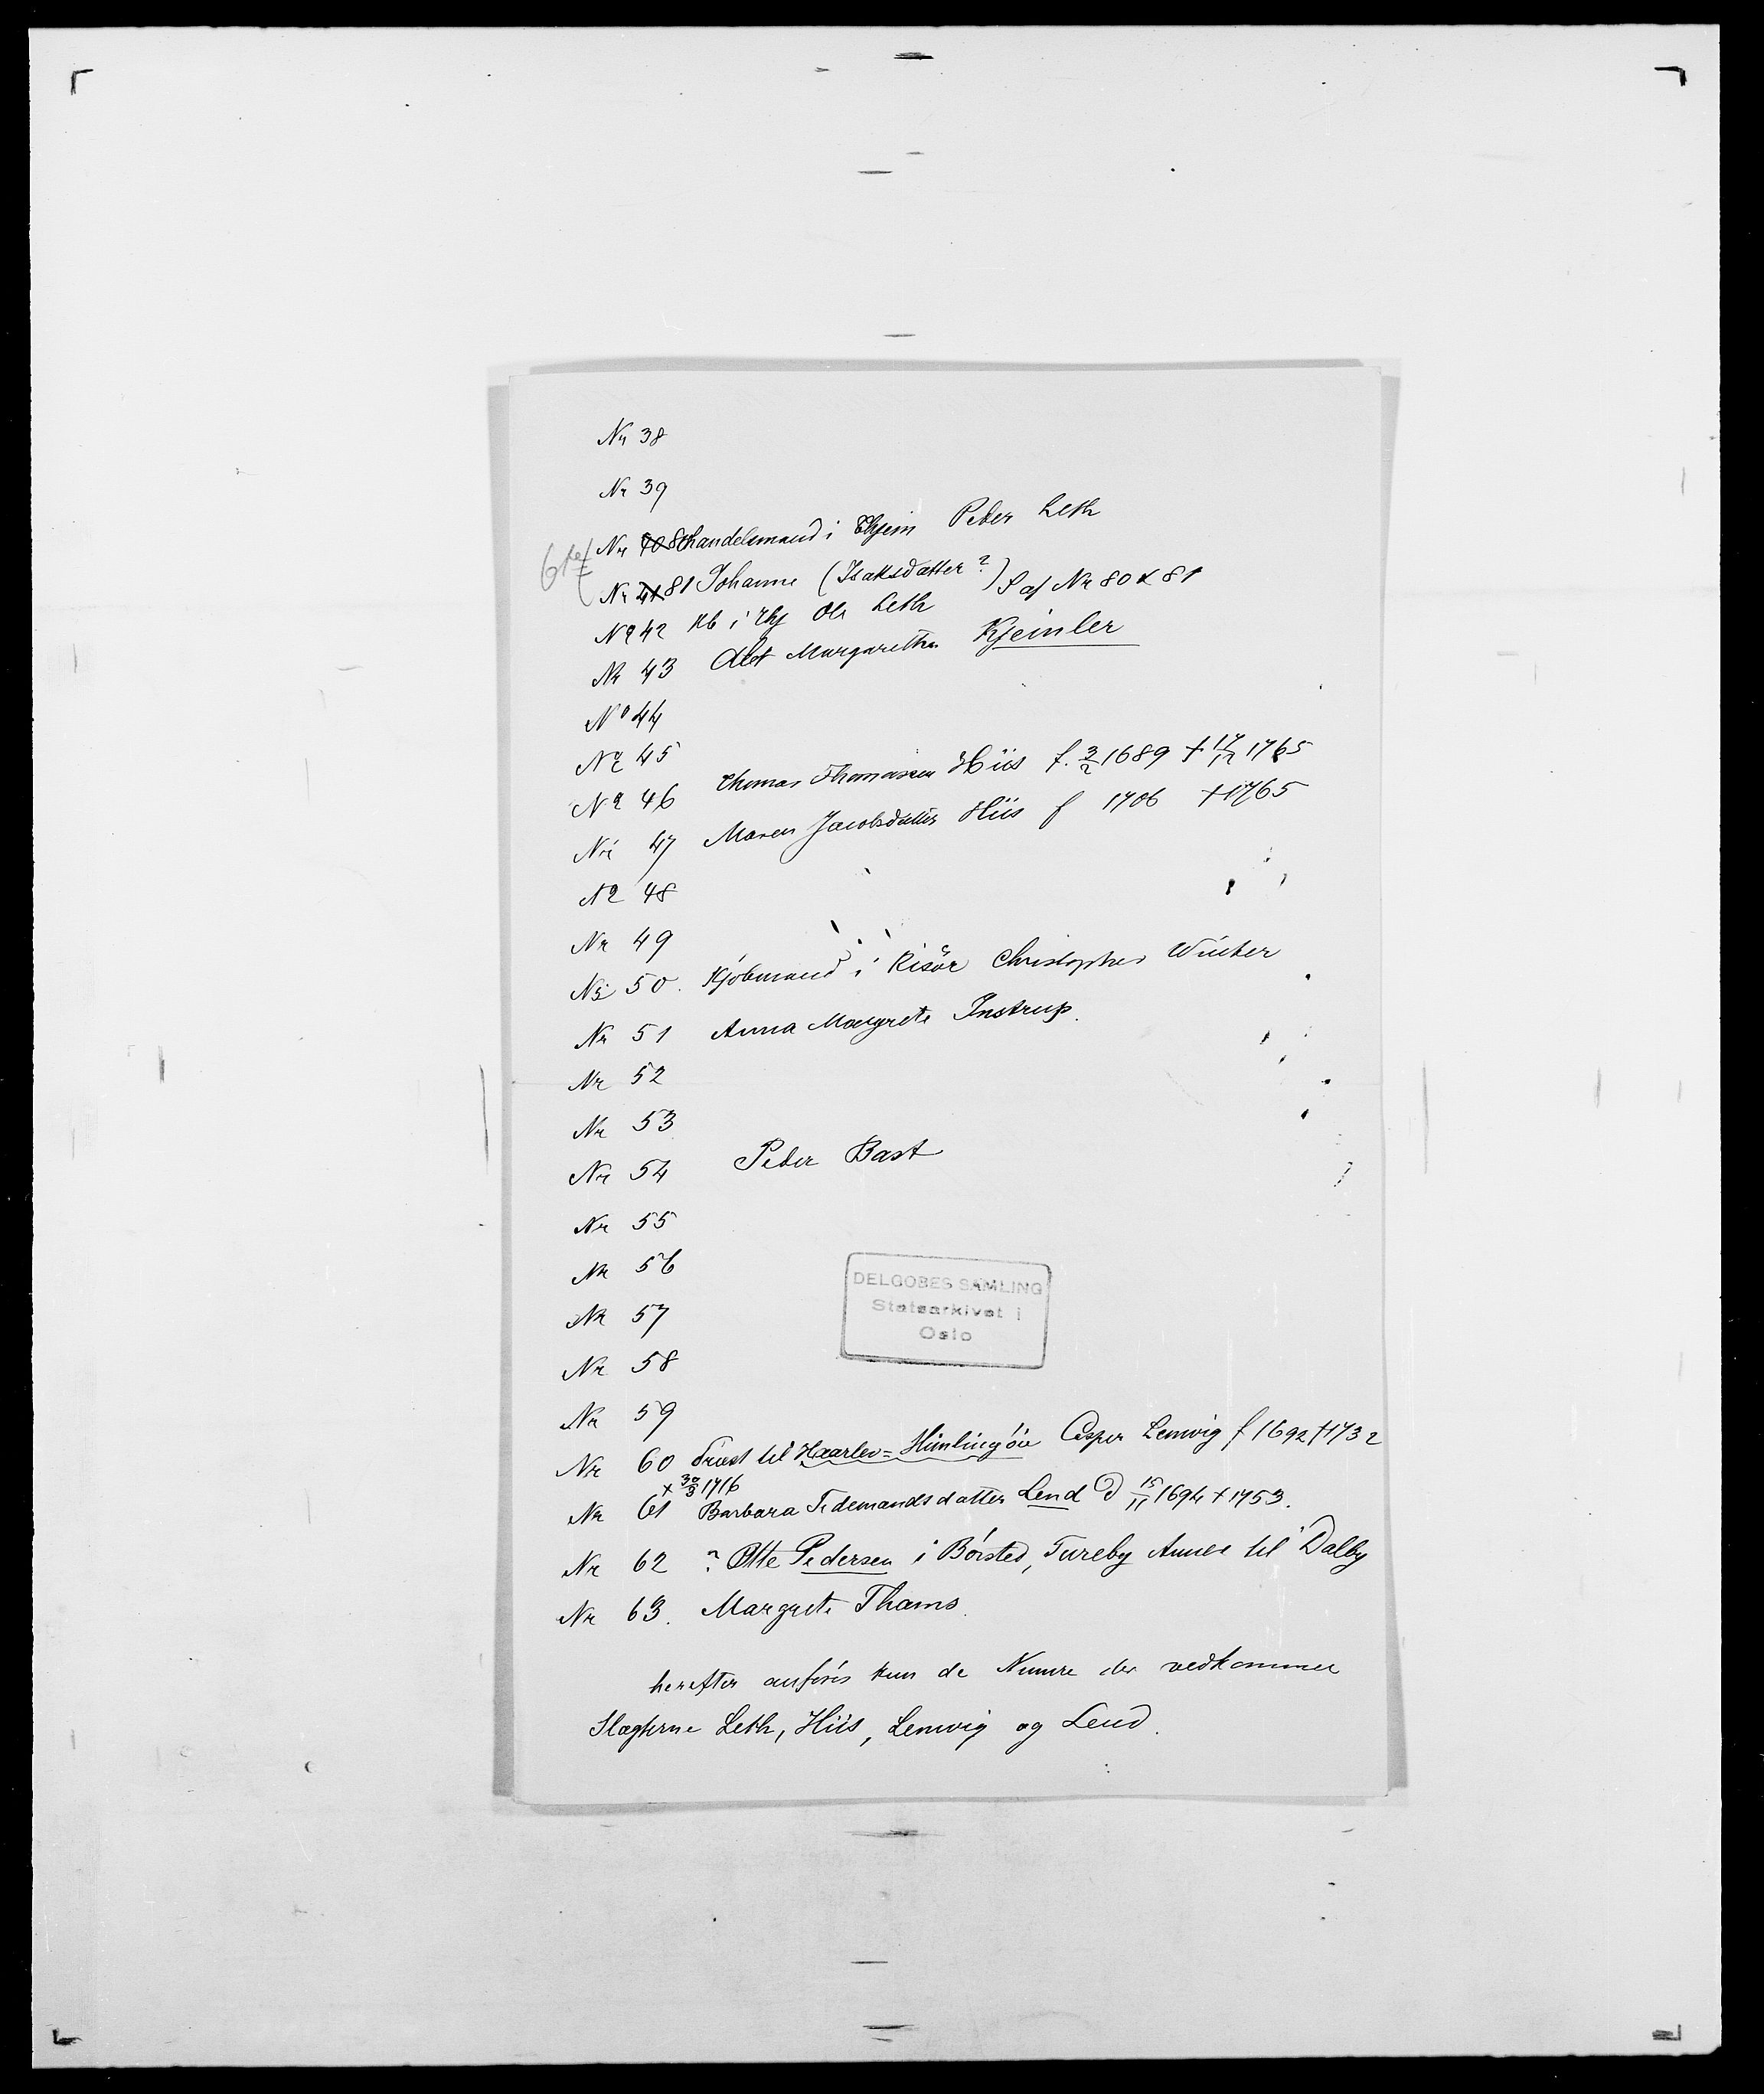 Nr 38
Nr 39
6te Nr 40 80 handelsmand i Thjem Peter Leth
Nr 41 81 Johanne (Isaksdatter?)
Nr 42 Kb i Thj Ole Leth S af Nr 80 & 81
Nr 43 Alet Margaretha Kjeinler
No 44
Nr 45
Nr 46 Thomas Thomassen Hiis f. 3/2 1689 † 17/12 1765
Nr 47 Maren Jacobsdatter Hiis f 1706 † 1765
Nr 48
Nr 49
Nr 50. Kjöbmand i Risör Christopher Winter
Nr 51 Anna Margrete Instrup.
Nr 52
Nr 53
Nr 54 Peter Bast
Nr 55
Nr 56
Nr 57
Nr 58
Nr 59
DELGOBES SAMLING
Statsarkivet i
Oslo
Nr 60 Præst til Haarlev=Himlingöie Casper Lemvig f 1692 † 1732
x 30/3 1716
Nr 61 Barbara Tidemandsdatter Lend D 15/11 1694 † 1753.
Nr 62 ? Otte Pedersen i Börsted, Tureby Annex til Dalby
Nr 63. Margrete Thams.
herefter anföres kun de Numre der vedkommer
Slægterne Leth, Hiis, Lemvig og Lend.